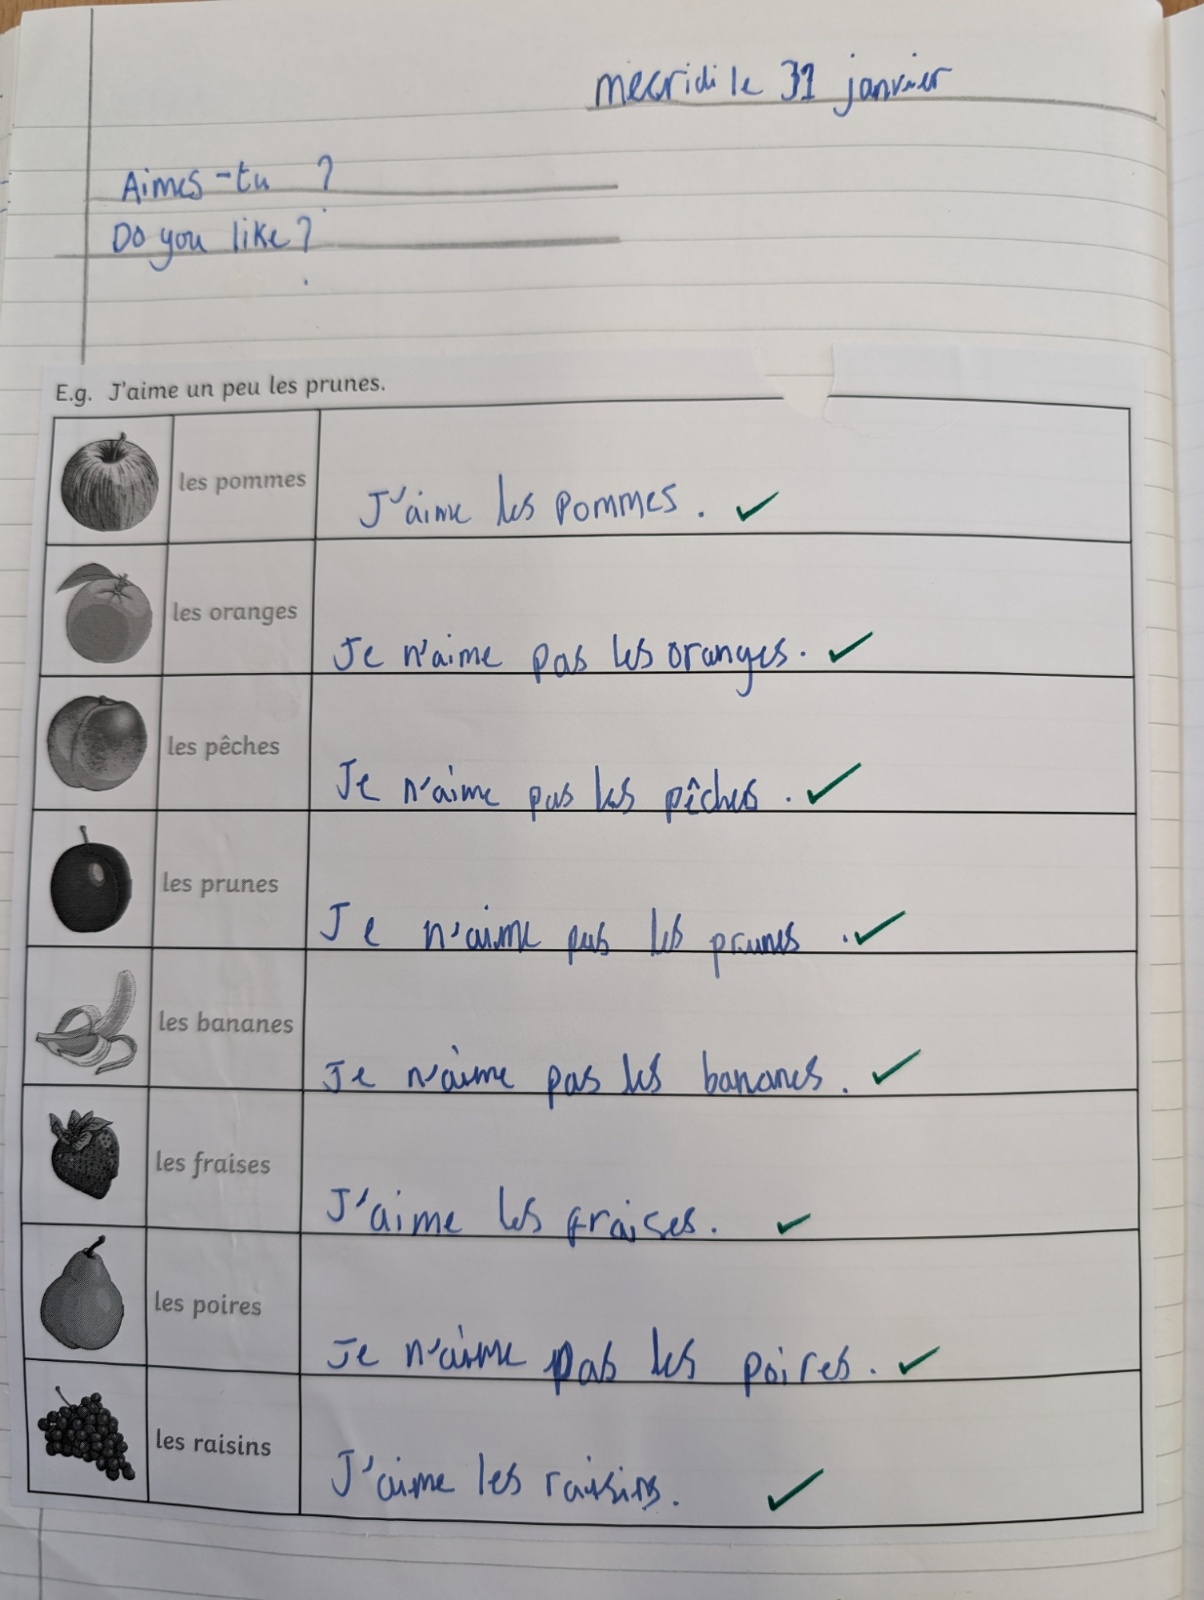 mecridi le 31 janvier
Aimes-tu ?
Do you like?
E.g. J'aime un peu les prunes.
les pommes
J'aime les pommes.
les oranges
Je n'aime pas les oranges.
les pêches
Je n'aime pas les pêches.
les prunes
Je n'aime pas les prunes.
les bananes
Je n'aime pas les bananes.
les fraises
J'aime les fraises.
les poires
Je n'aime pas les poires.
les raisins
J'aime les raisins.